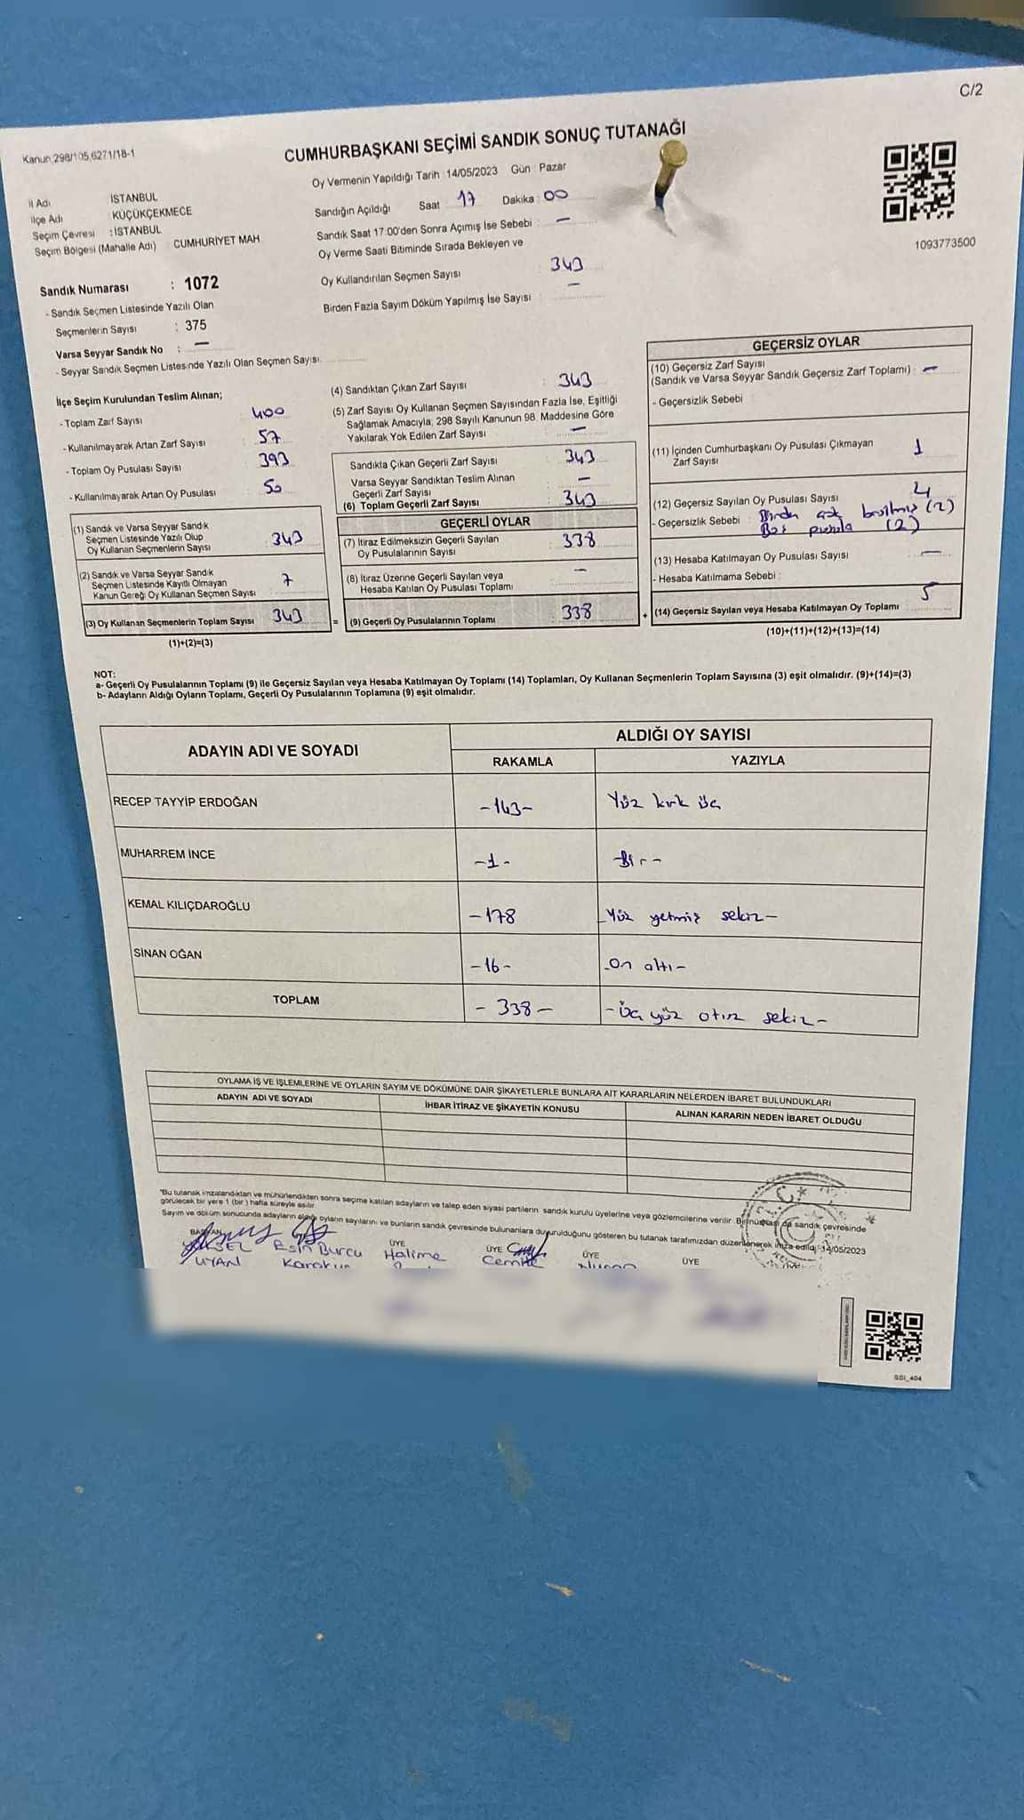 C/2
Kanun,298/105,6271/18-1
CUMHURBAŞKANI SEÇİMİ SANDIK SONUÇ TUTANAĞI
Oy Vermenin Yapıldığı Tarih :14/05/2023 Gün : Pazar
İl Adı İSTANBUL
İlçe Adı KÜÇÜKÇEKMECE
Seçim Çevresi :İSTANBUL
Seçim Bölgesi (Mahalle Adı) CUMHURİYET MAH
Sandık Numarası : 1072
- Sandık Seçmen Listesinde Yazılı Olan
Seçmenlerin Sayısı : 375
Varsa Seyyar Sandık No : —
- Seyyar Sandık Seçmen Listesinde Yazılı Olan Seçmen Sayısı
Sandığın Açıldığı Saat 17 Dakika : 00
Sandık Saat 17:00'den Sonra Açımış İse Sebebi : —
Oy Verme Saati Bitiminde Sırada Bekleyen ve
Oy Kullandırılan Seçmen Sayısı 343
Birden Fazla Sayım Döküm Yapılmış İse Sayısı : —
1093773500
İlçe Seçim Kurulundan Teslim Alınan;
- Toplam Zarf Sayısı 400
- Kullanılmayarak Artan Zarf Sayısı 57
- Toplam Oy Pusulası Sayısı 393
- Kullanılmayarak Artan Oy Pusulası 50
(1) Sandık ve Varsa Seyyar Sandık
Seçmen Listesinde Yazılı Olup
Oy Kullanan Seçmenlerin Sayısı 343
(2) Sandık ve Varsa Seyyar Sandık
Seçmen Listesinde Kayıtlı Olmayan
Kanun Gereği Oy Kullanan Seçmen Sayısı 7
(3) Oy Kullanan Seçmenlerin Toplam Sayısı 343
(1)+(2)=(3)
(4) Sandıktan Çıkan Zarf Sayısı : 343
(5) Zarf Sayısı Oy Kullanan Seçmen Sayısından Fazla İse, Eşitliği
Sağlamak Amacıyla; 298 Sayılı Kanunun 98. Maddesine Göre
Yakılarak Yok Edilen Zarf Sayısı : —
Sandıkta Çıkan Geçerli Zarf Sayısı : 343
Varsa Seyyar Sandıktan Teslim Alınan
Geçerli Zarf Sayısı —
(6) Toplam Geçerli Zarf Sayısı 343
GEÇERLİ OYLAR
(7) İtiraz Edilmeksizin Geçerli Sayılan
Oy Pusulalarının Sayısı 338
(8) İtiraz Üzerine Geçerli Sayılan veya
Hesaba Katılan Oy Pusulası Toplamı —
= (9) Geçerli Oy Pusulalarının Toplamı 338 +
GEÇERSİZ OYLAR
(10) Geçersiz Zarf Sayısı
(Sandık ve Varsa Seyyar Sandık Geçersiz Zarf Toplamı) : —
- Geçersizlik Sebebi
(11) İçinden Cumhurbaşkanı Oy Pusulası Çıkmayan
Zarf Sayısı 1
(12) Geçersiz Sayılan Oy Pusulası Sayısı 4
- Geçersizlik Sebebi : Birden çok basılmış (2)
Boş pusula (2)
(13) Hesaba Katılmayan Oy Pusulası Sayısı —
- Hesaba Katılmama Sebebi :
(14) Geçersiz Sayılan veya Hesaba Katılmayan Oy Toplamı 5
(10)+(11)+(12)+(13)=(14)
NOT:
a- Geçerli Oy Pusulalarının Toplamı (9) ile Geçersiz Sayılan veya Hesaba Katılmayan Oy Toplamı (14) Toplamları, Oy Kullanan Seçmenlerin Toplam Sayısına (3) eşit olmalıdır. (9)+(14)=(3)
b- Adayların Aldığı Oyların Toplamı, Geçerli Oy Pusulalarının Toplamına (9) eşit olmalıdır.
ADAYIN ADI VE SOYADI
ALDIĞI OY SAYISI
RAKAMLA YAZIYLA
RECEP TAYYİP ERDOĞAN -143- Yüz kırk üç
MUHARREM İNCE -1- -Bir-
KEMAL KILIÇDAROĞLU -178 -Yüz yetmiş sekiz-
SİNAN OĞAN -16- -On altı-
TOPLAM - 338 - -üç yüz otuz sekiz-
OYLAMA İŞ VE İŞLEMLERİNE VE OYLARIN SAYIM VE DÖKÜMÜNE DAİR ŞİKAYETLERLE BUNLARA AİT KARARLARIN NELERDEN İBARET BULUNDUKLARI
ADAYIN ADI VE SOYADI İHBAR İTİRAZ VE ŞİKAYETİN KONUSU ALINAN KARARIN NEDEN İBARET OLDUĞU
*Bu tutanak imzalandıktan ve mühürlendikten sonra seçime katılan adayların ve talep eden siyasi partilerin sandık kurulu üyelerine veya gözlemcilerine verilir. Bir nüshası da sandık çevresinde
görülecek bir yere 1 (bir) hafta süreyle asılır.
Sayım ve döküm sonucunda adayların aldığı oyların sayılarını ve bunların sandık çevresinde bulunanlara duyurulduğunu gösteren bu tutanak tarafımızdan düzenlenerek imza edildi. 14/05/2023
BAŞKAN ÜYE ÜYE ÜYE ÜYE
YÜKSEL Esin Burcu Halime Cemile
UYAN
SSI_404